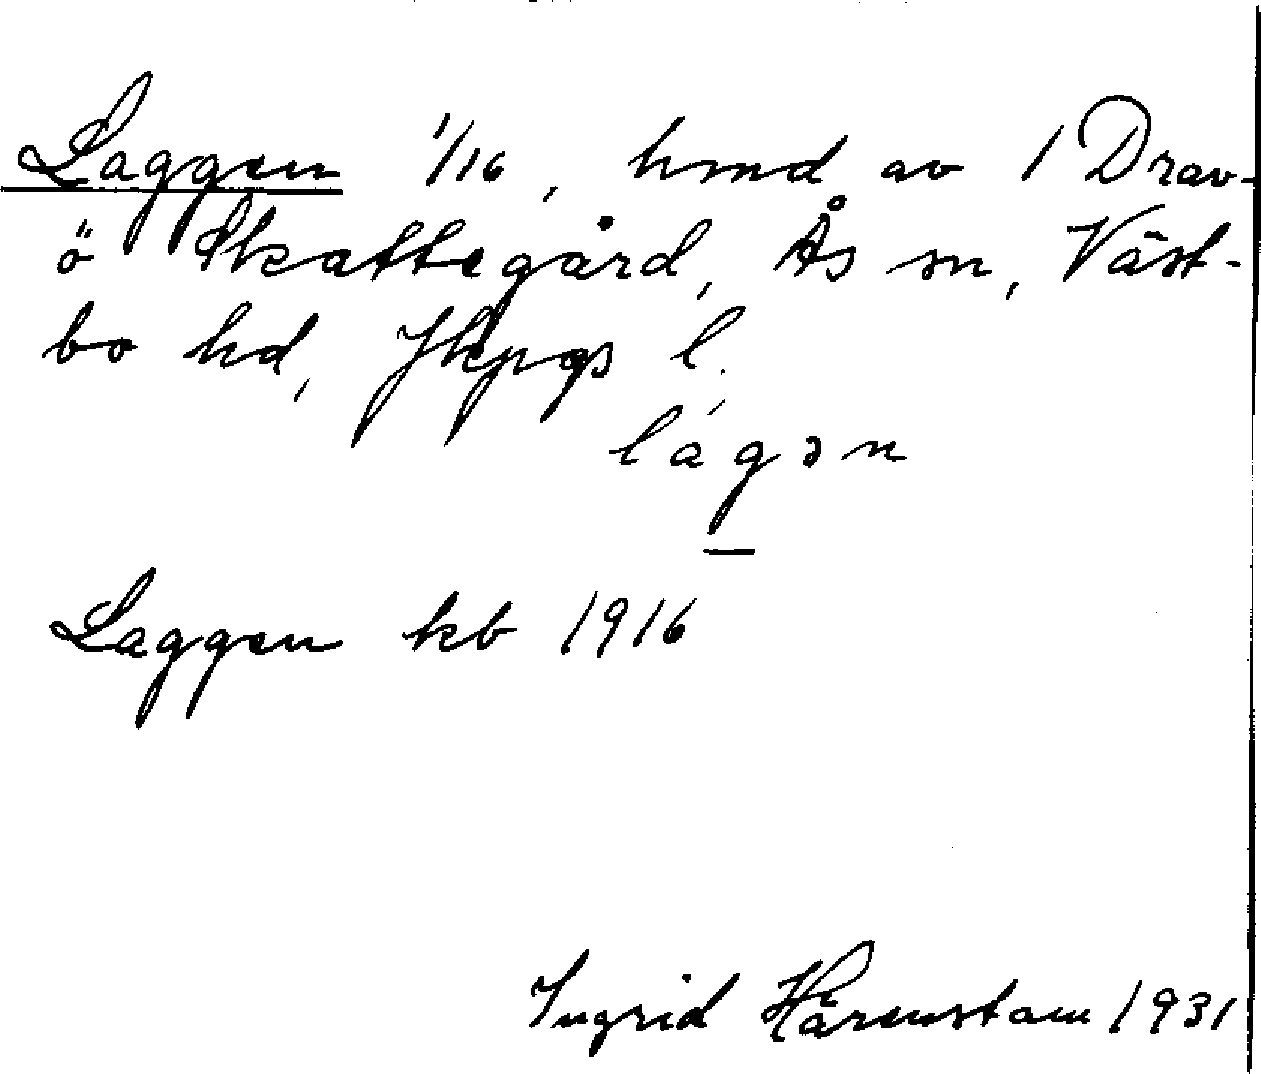 Laggen 1/16, hmd av 1 Drav-
ö Skattegård, Ås sn, Väst-
bo hd, Jkpgs l.
lágən
Laggen kb 1916
Ingrid Härenstam 1931